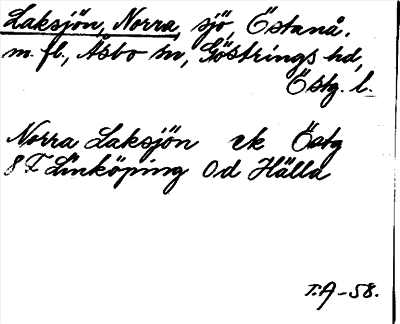 Laksjön, Norra, sjö, Östanå.
m. fl., Åsbo sn, Göstrings hd,
Östg. l.
Norra Laksjön ek Östg
8 F Linköping 0d Hälla
T.A-58.